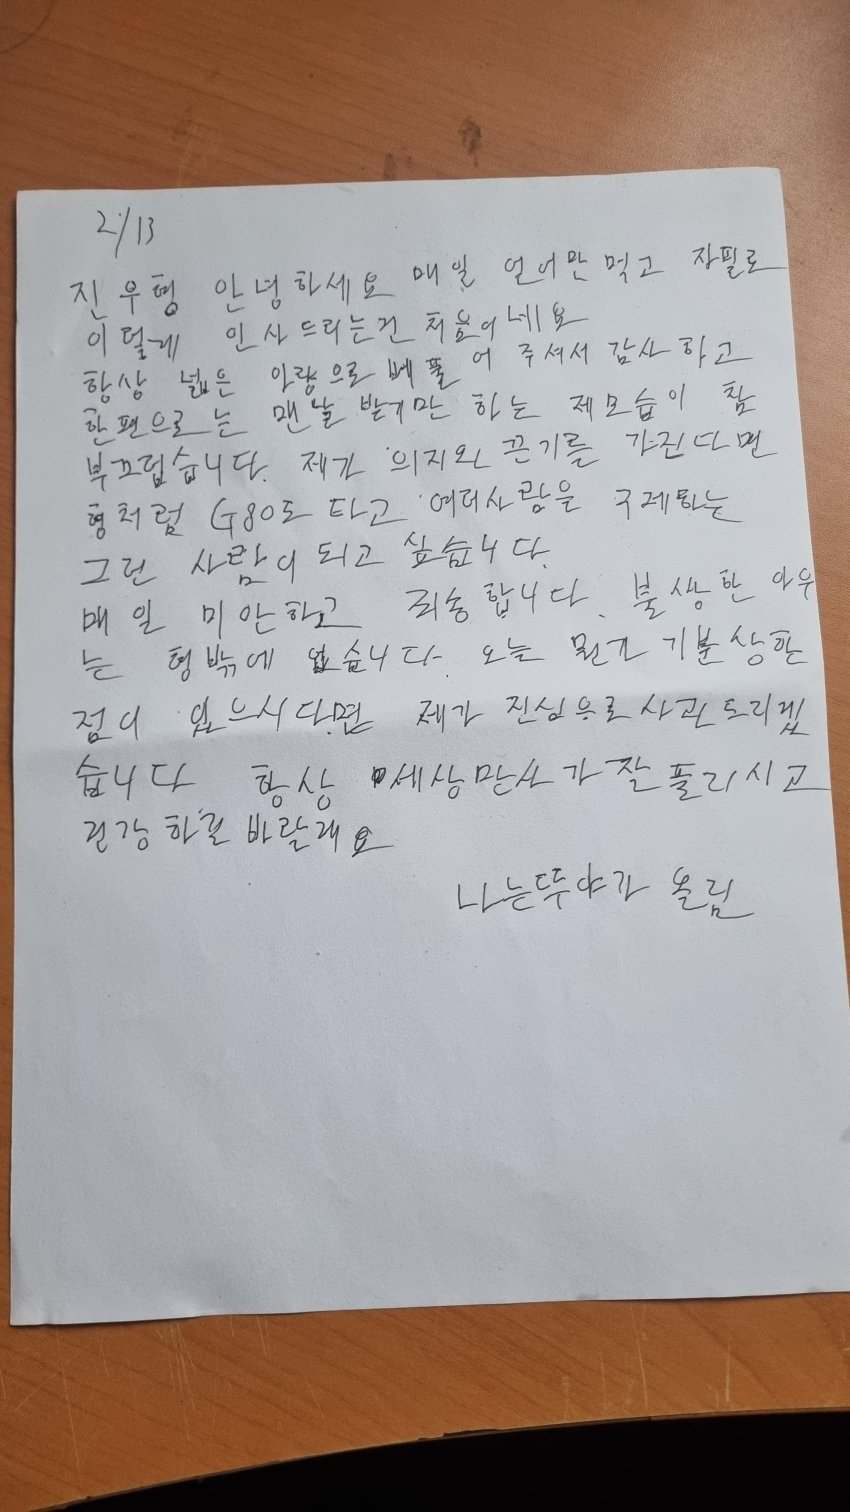 2/13
진우형 안녕하세요 매일 얻어만 먹고 자필로
이렇게 인사드리는건 처음이네요
항상 넓은 아량으로 베풀어 주셔서 감사하고
한편으로는 맨날 받기만 하는 제모습이 참
부끄럽습니다. 제가 의지와 끈기를 가진다면
형처럼 G80도 타고 여러사람을 구제하는
그런 사람이 되고 싶습니다.
매일 미안하고 죄송합니다. 불상한 아우
는 형밖에 없습니다. 오늘 뭔가 기분상한
점이 있으시다면 제가 진심으로 사과드리겠
습니다 항상 세상만사가 잘 풀리시고
건강하길 바랄래요
나는뚜야가 올림